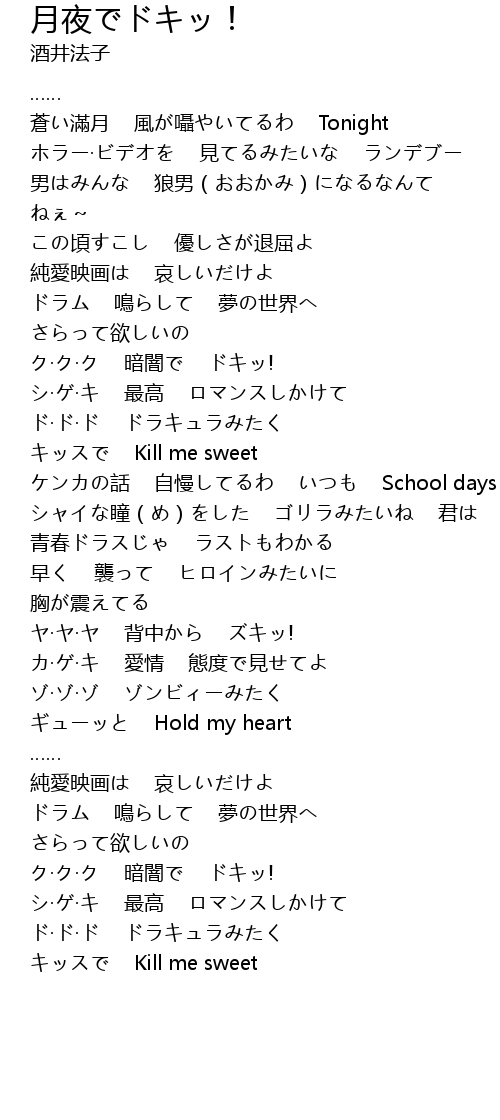 月夜でドキッ！
酒井法子
......
蒼い満月　風が囁やいてるわ　Tonight
ホラー·ビデオを　見てるみたいな　ランデブー
男はみんな　狼男 ( おおかみ ) になるなんて
ねぇ ~
この頃すこし　優しさが退屈よ
純愛映画は　哀しいだけよ
ドラム　鳴らして　夢の世界へ
さらって欲しいの
ク·ク·ク　暗闇で　ドキッ!
シ·ゲ·キ　最高　ロマンスしかけて
ド·ド·ド　ドラキュラみたく
キッスで　Kill me sweet
ケンカの話　自慢してるわ　いつも　School days
シャイな瞳 ( め ) をした　ゴリラみたいね　君は
青春ドラスじゃ　ラストもわかる
早く　襲って　ヒロインみたいに
胸が震えてる
ヤ·ヤ·ヤ　背中から　ズキッ!
カ·ゲ·キ　愛情　態度で見せてよ
ゾ·ゾ·ゾ　ゾンビィーみたく
ギューッと　Hold my heart
......
純愛映画は　哀しいだけよ
ドラム　鳴らして　夢の世界へ
さらって欲しいの
ク·ク·ク　暗闇で　ドキッ!
シ·ゲ·キ　最高　ロマンスしかけて
ド·ド·ド　ドラキュラみたく
キッスで　Kill me sweet